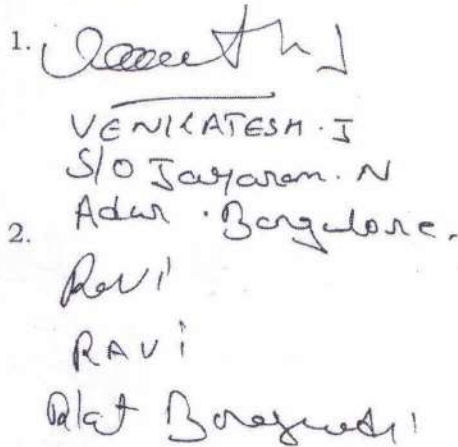 1.
VENKATESH. J
S/O Jayaram. N
Adur. Bangalore.
2.
Ravi
RAVI